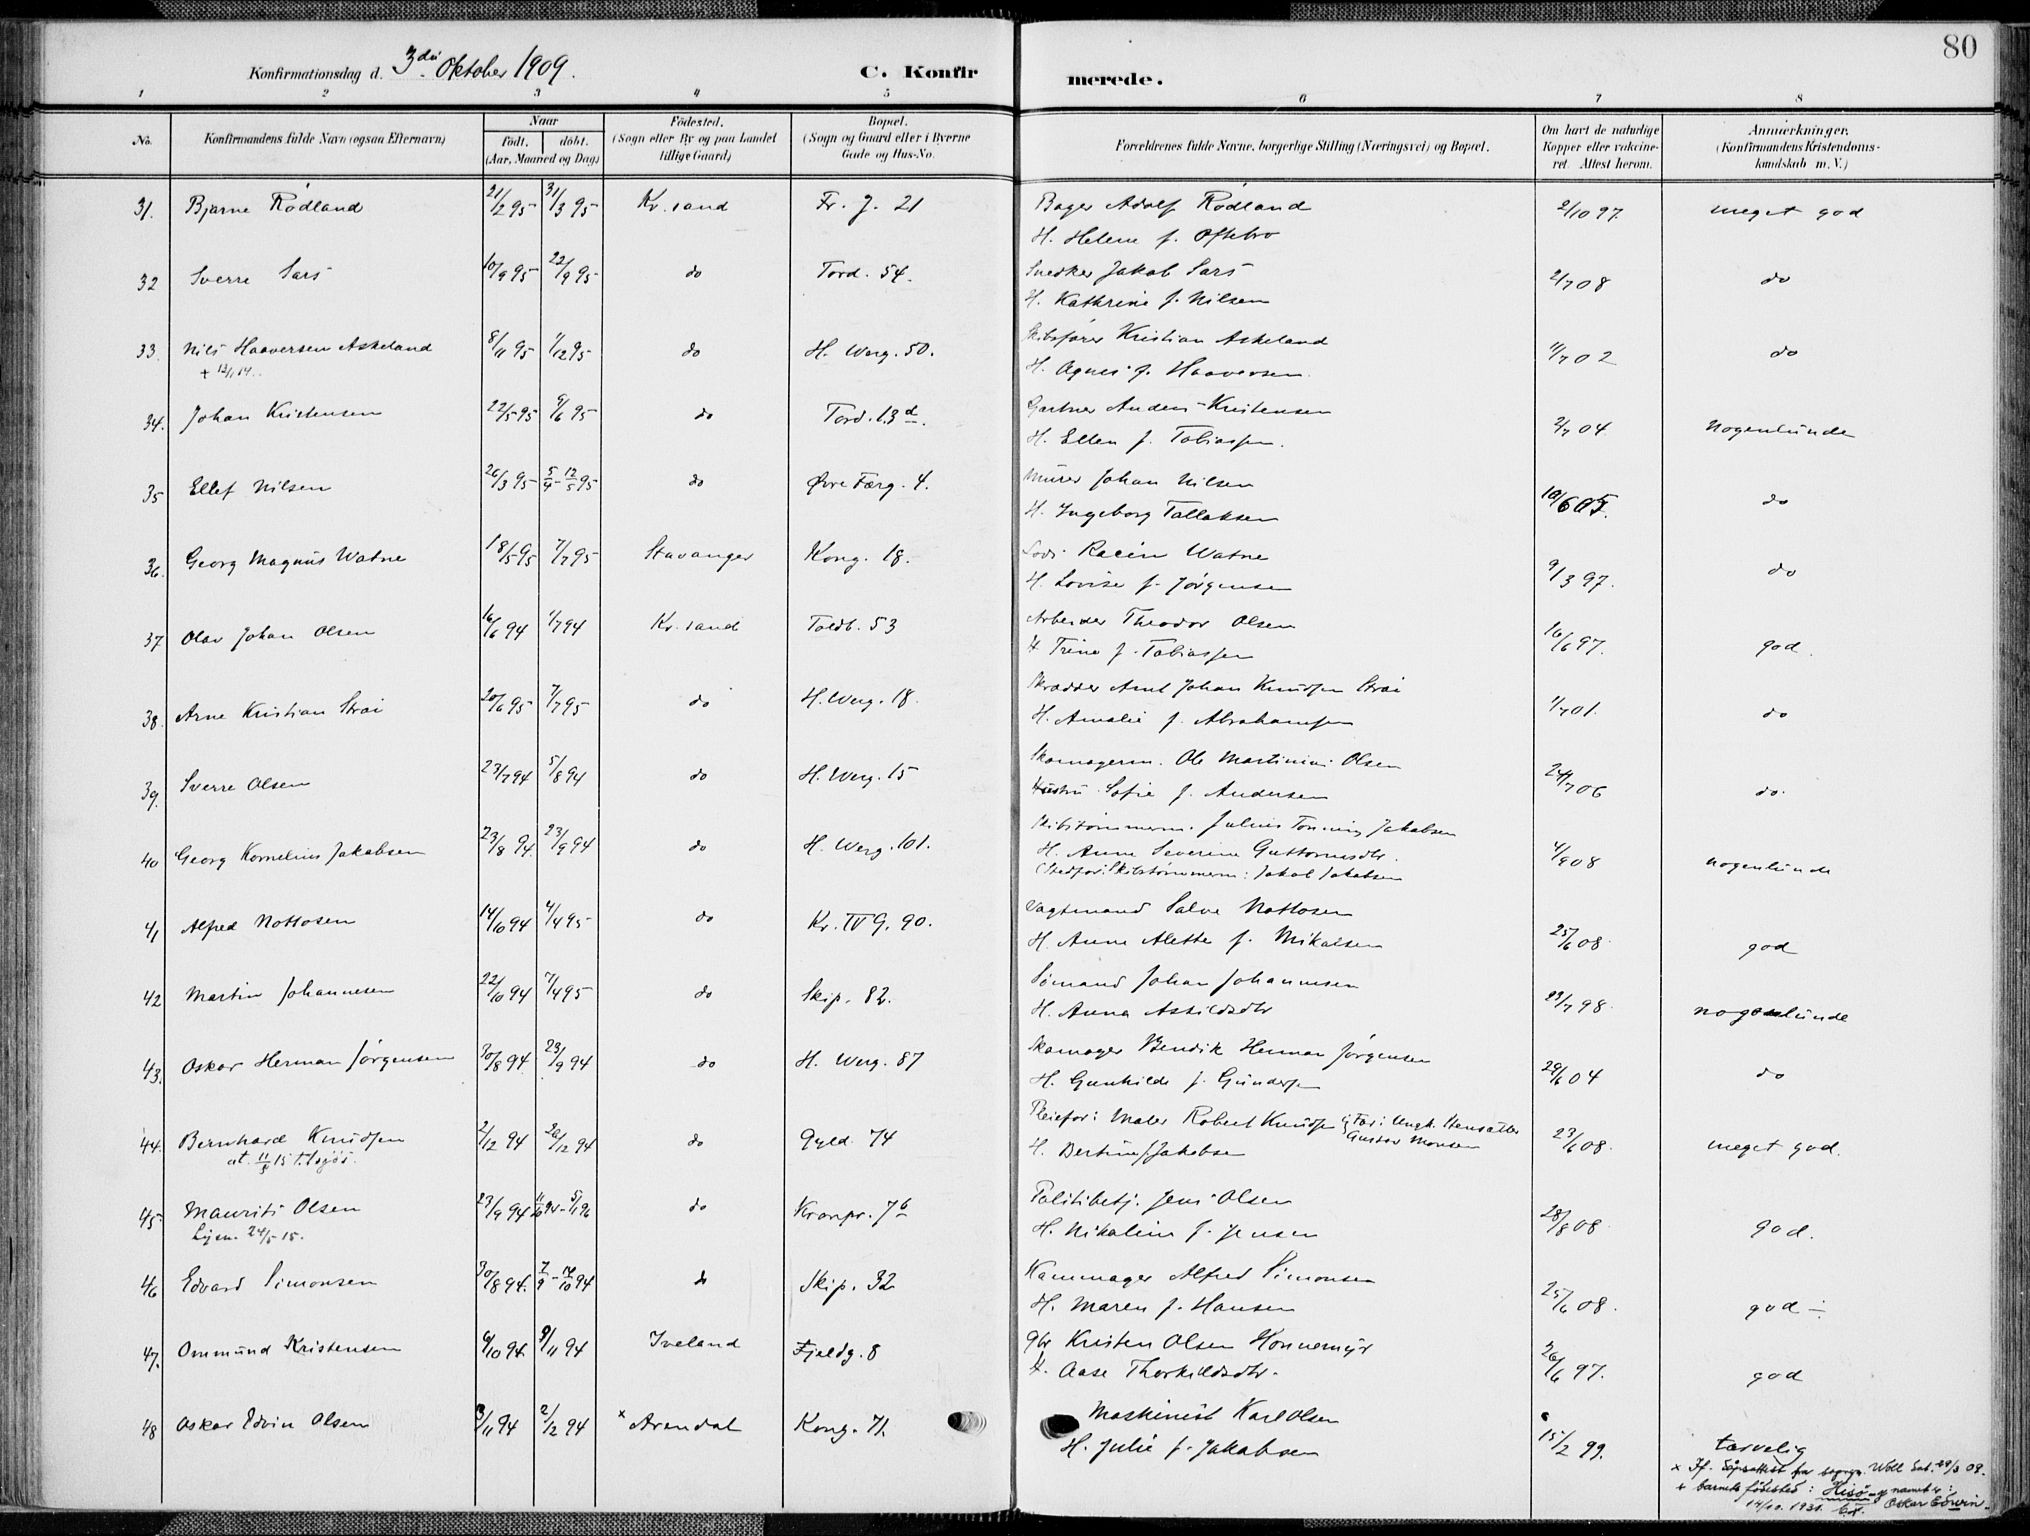 80
Konfirmationsdag d. 3die Oktober 1909.
C. Konfirmerede.
1 2 3 4 5 6 7 8
No. Konfirmandens fulde Navn (ogsaa Efternavn) Naar født. døbt. (Aar, Maaned og Dag) Fødested. (Sogn eller By og paa Landet tillige Gaard) Bopæl. (Sogn og Gaard eller i Byerne Gade og Hus-No. Forældrenes fulde Navne, borgerlige Stilling (Næringsvei) og Bopæl. Om havt de naturlige Kopper eller vakcineret. Attest herom. Anmærkninger. (Konfirmandens Kristendomskundskab m. V.)
31. Bjarne Rødland 21/2 95 31/3 95 Kr.sand Fr. J. 21 Bager Adolf Rødland 2/10 97 meget god
H. Helene f. Oftebro
32 Sverre Sars 10/9 95 22/9 95 do Tord. 54. Snedker Jakob Sars 2/7 08 do
H. Kathrine f. Nilsen
33. Nils Haaversen Askeland 8/11 95 1/12 95 do H. Werg. 50. Skibsfører Kristian Askeland 11/7 02 do
+ 13/1 14. H. Agnes f. Haaversen
34. Johan Kristensen 22/5 95 9/6 95 do Tord. 13 d. Gartner Anders Kristensen 2/7 04 Nogenlunde
H. Ellen f. Tobiassen.
35 Ellef Nilsen 26/3 95 5/4 - 12/5 95 do Øvre Færg. 4. Murer Johan Nilsen 10/6 05. do
H. Ingeborg Tallaksen
36. Georg Magnus Watne 18/5 95 7/7 95 Stavanger Kong. 18. Watne 9/3 97. do
H. Lovise f. Jørgensen
37 Olav Johan Olsen 16/6 94 1/7 94 Kr.sand Toldb. 53 Arbeider Theodor Olsen 16/6 97. god.
H Trine f. Tobiassen
38. Arne Kristian Strai 20/6 95 7/7 95 do H. Werg. 18. Skrædder Arnt Johan Knudsen Strai 1/7 01. do
H. Amalie f. Abrahamsen
39. Sverre Olsen 23/7 94 5/8 94 do H. Werg. 15 Skomagerm. Ole Martinius Olsen 24/7 06 do.
Hustru Sofie f. Andersen
40 Georg Kornelius Jakobsen 23/8 94. 23/9 94 do H. Werg. 101. Skibstømmerm. Julius Tonning Jakobsen 4/9 08 nogenlunde
H. Anne Severine Guttormsdtr.
(Stedfar: Skibstømmerm: Jakob Jakobsen
41 Alfred Nottosen 14/10 94 4/4 95 do Kr. IV G. 90. Vagtmand Salve Nottosen 25/6 08. god
H. Anne Alette f. Mikalsen
42 Martin Johannesen 22/10 94 7/4 95 do Skip. 82. Sømand Johan Johannesen 29/7 98. nogenlunde
H. Anna Askildsdtr
43. Oskar Herman Jørgensen 30/8 94. 23/9 94 do H. Werg. 87 Skomager Bendik Herman Jørgensen 29/6 04 do
H. Gunhilde f. Gundersen
44. Bernhard Knudsen 2/12 94 26/12 94 do Gyld. 74 Pleiefor: Maler Robert Knudsen Far: Ungk. 23/6 08. meget god.
at. 11/5 15 H. Bertine f Jakobsen Gustav Monsen
45 Maurits Olsen 23/9 94 11/10 94 - 5/1 96 do Kronpr. 7 b Politibetj. Jens Olsen 28/8 08 god.
24/5 15. H. Nikoline f. Jensen
46 Edvard Simonsen 30/8 94. 7/9 - 14/10 94 do Skip. 32 Kammager Alfred Simonsen 25/6 08. god ÷
H. Maren f. Hansen
47. Ommund Kristensen 6/10 94. 9/11 94 Iveland Fjeldg. 8 Gbr Kristen Olsen Honnemyr 26/6 97. god
H. Aase Thorkildsdtr.
48 Oskar Edvin Olsen 3/11 94 2/12 94 × Arendal Kong. 71. Maskinist Karl Olsen 15/2 99. tarvelig
H. Julie f. Jakobsen
× If. dåpsattest fra sogepr. Woll dat. 29/3 08.
e barnets fødested: Hisø - og navnet:
14/10. 1931. Oskar Edwin.